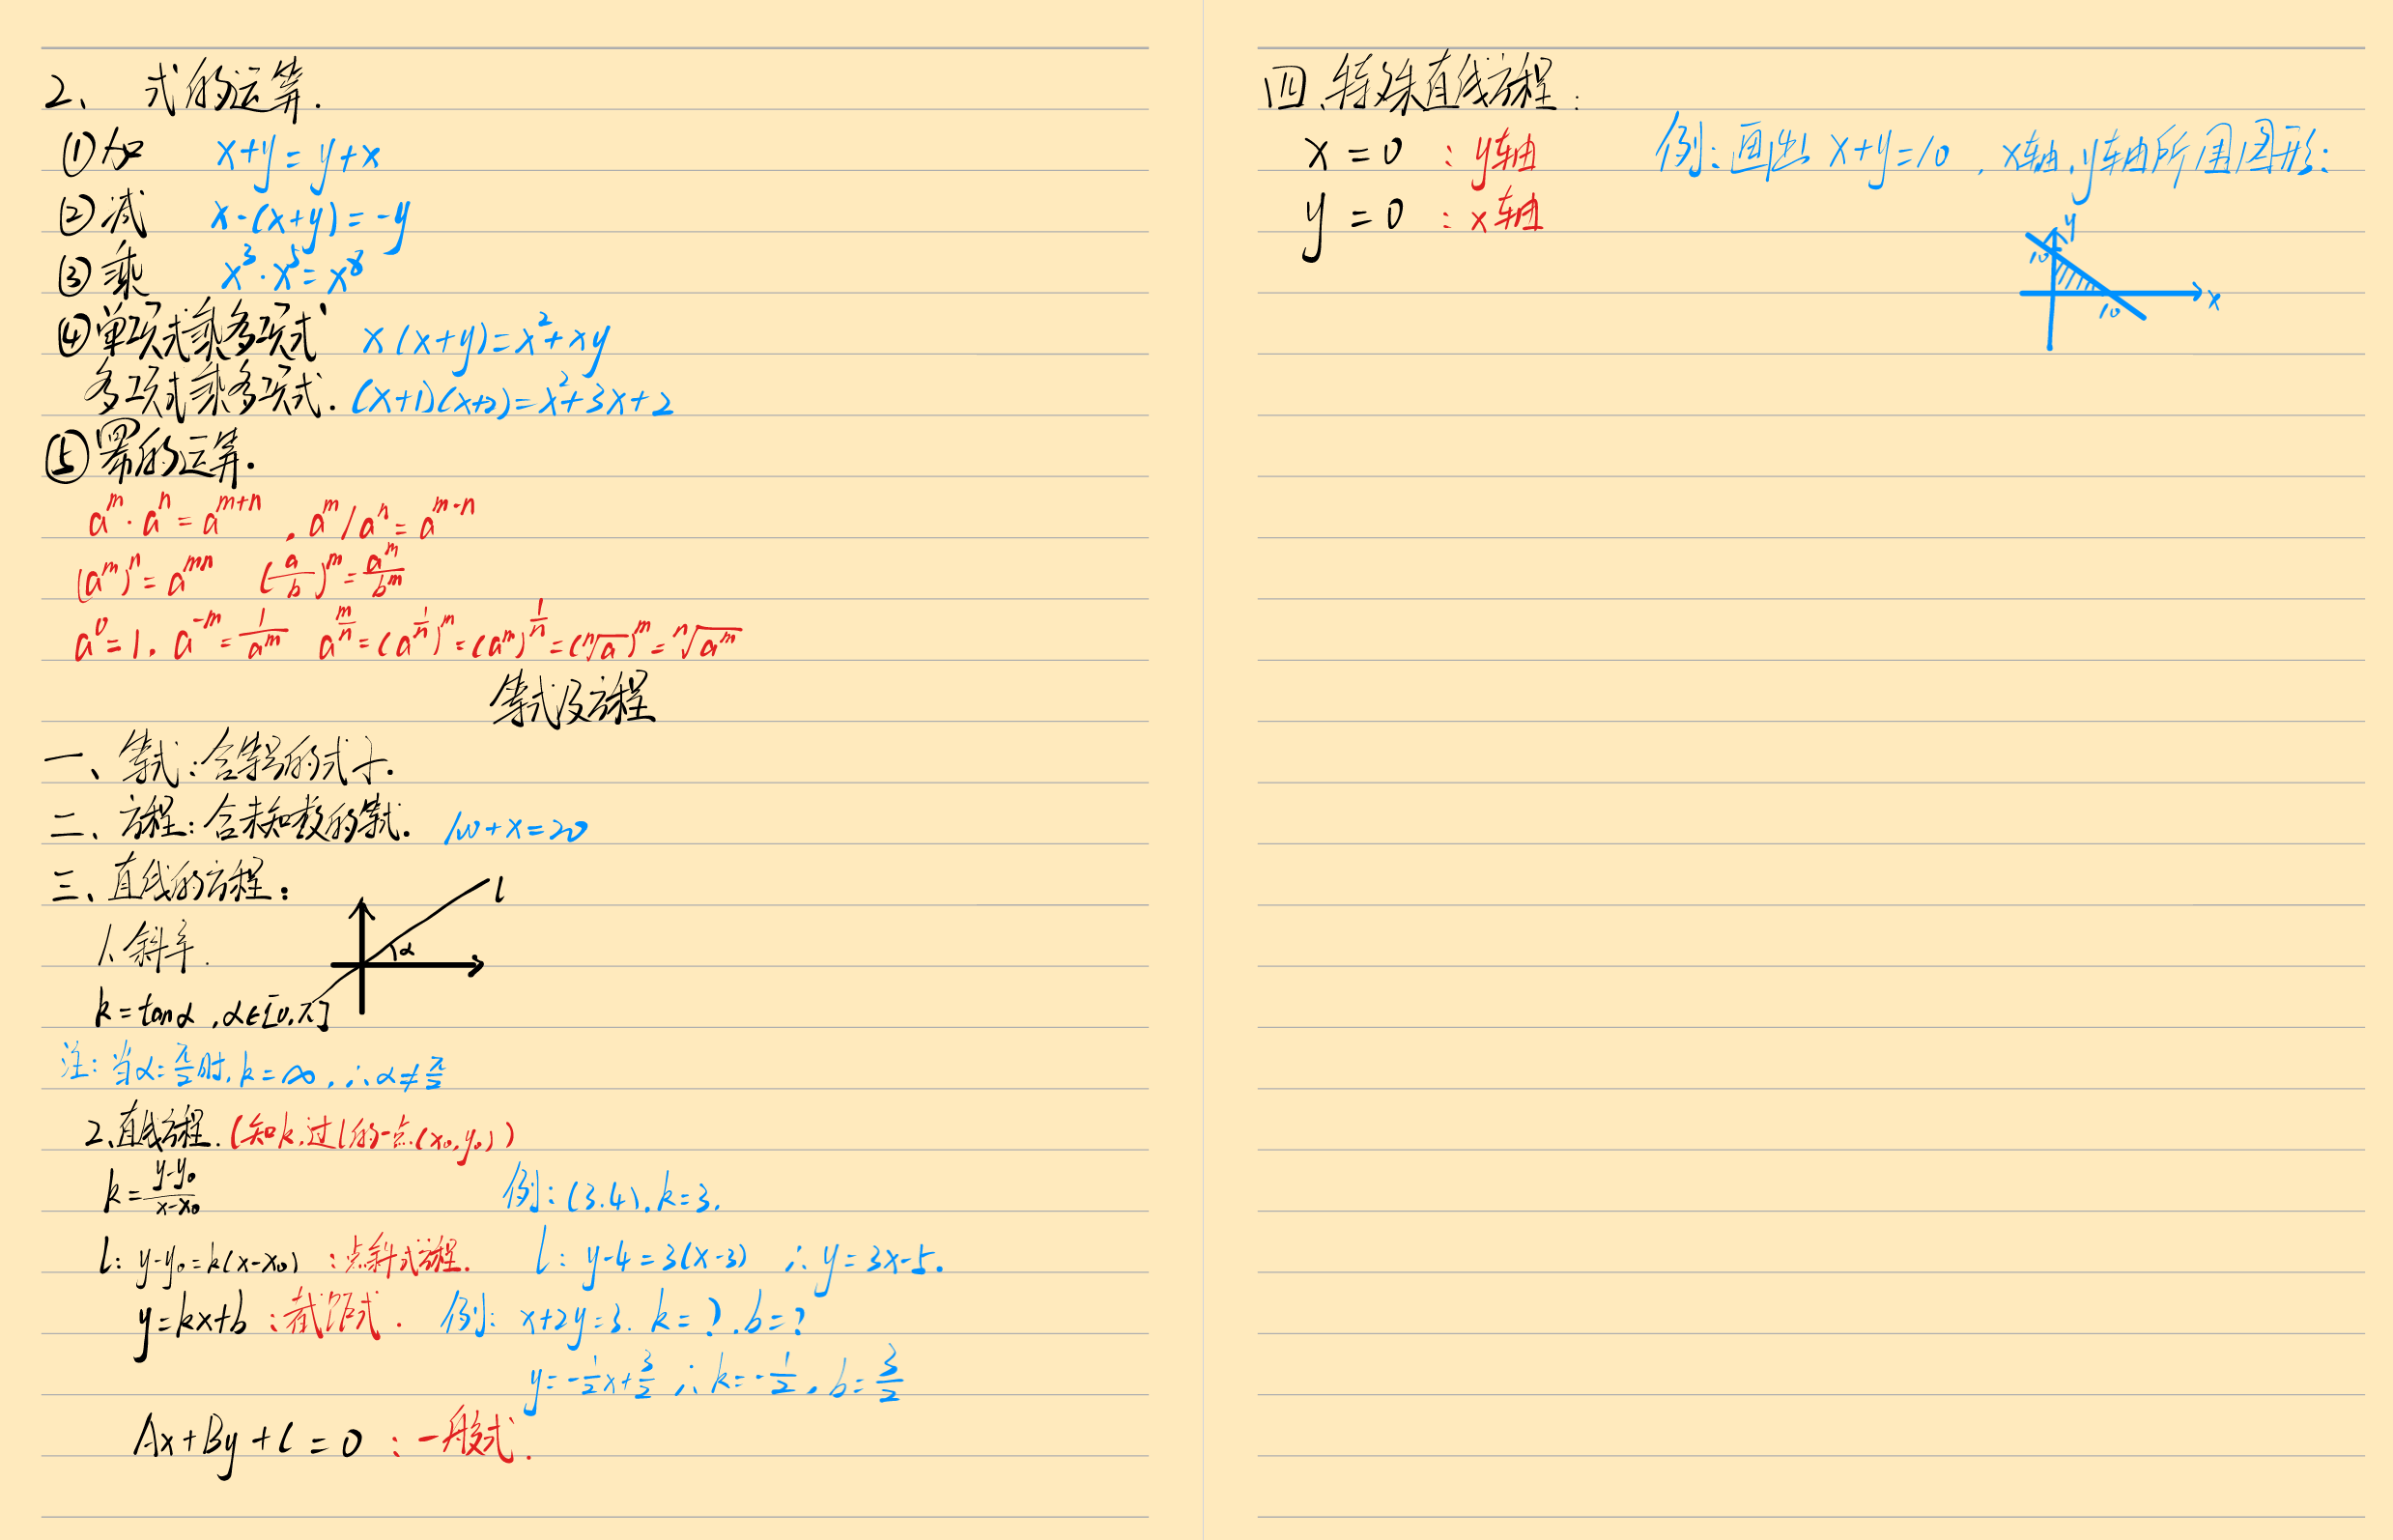 2、 式的运算.
①加 x+y=y+x
②减 x-(x+y)=-y
③乘 x³·x⁵=x⁸
④单项式乘多项式 x(x+y)=x²+xy
多项式乘多项式. (x+1)(x+2)=x²+3x+2
⑤幂的运算.
a^m·a^n=a^(m+n) . a^m/a^n=a^(m-n)
(a^m)^n=a^(mn) (a/b)^m=a^m/b^m
a⁰=1. a^(-m)=1/a^m a^(m/n)=(a^(1/n))^m=(a^m)^(1/n)=(ⁿ√a)^m=ⁿ√(a^m)
等式及方程
一、等式:含等号的式子.
二、方程:含未知数的等式. 10+x=20
三、直线的方程:
l
1、斜率.
α
k=tanα,α∈[0,π]
注:当α=π/2时,k=∞,∴α≠π/2
2、直线方程.(知k,过l的一点(x₀,y₀))
k=(y-y₀)/(x-x₀) 例:(3.4).k=3.
l: y-y₀=k(x-x₀) :点斜式方程. l: y-4=3(x-3) ∴y=3x-5.
y=kx+b :截距式. 例: x+2y=3. k=?.b=?
y=-1/2x+3/2 ∴k=-1/2. b=3/2
Ax+By+C=0 :一般式.
四、特殊直线方程:
x=0 :y轴 例:画出 x+y=10 , x轴,y轴所围图形:
y=0 :x轴
y
10
x
10